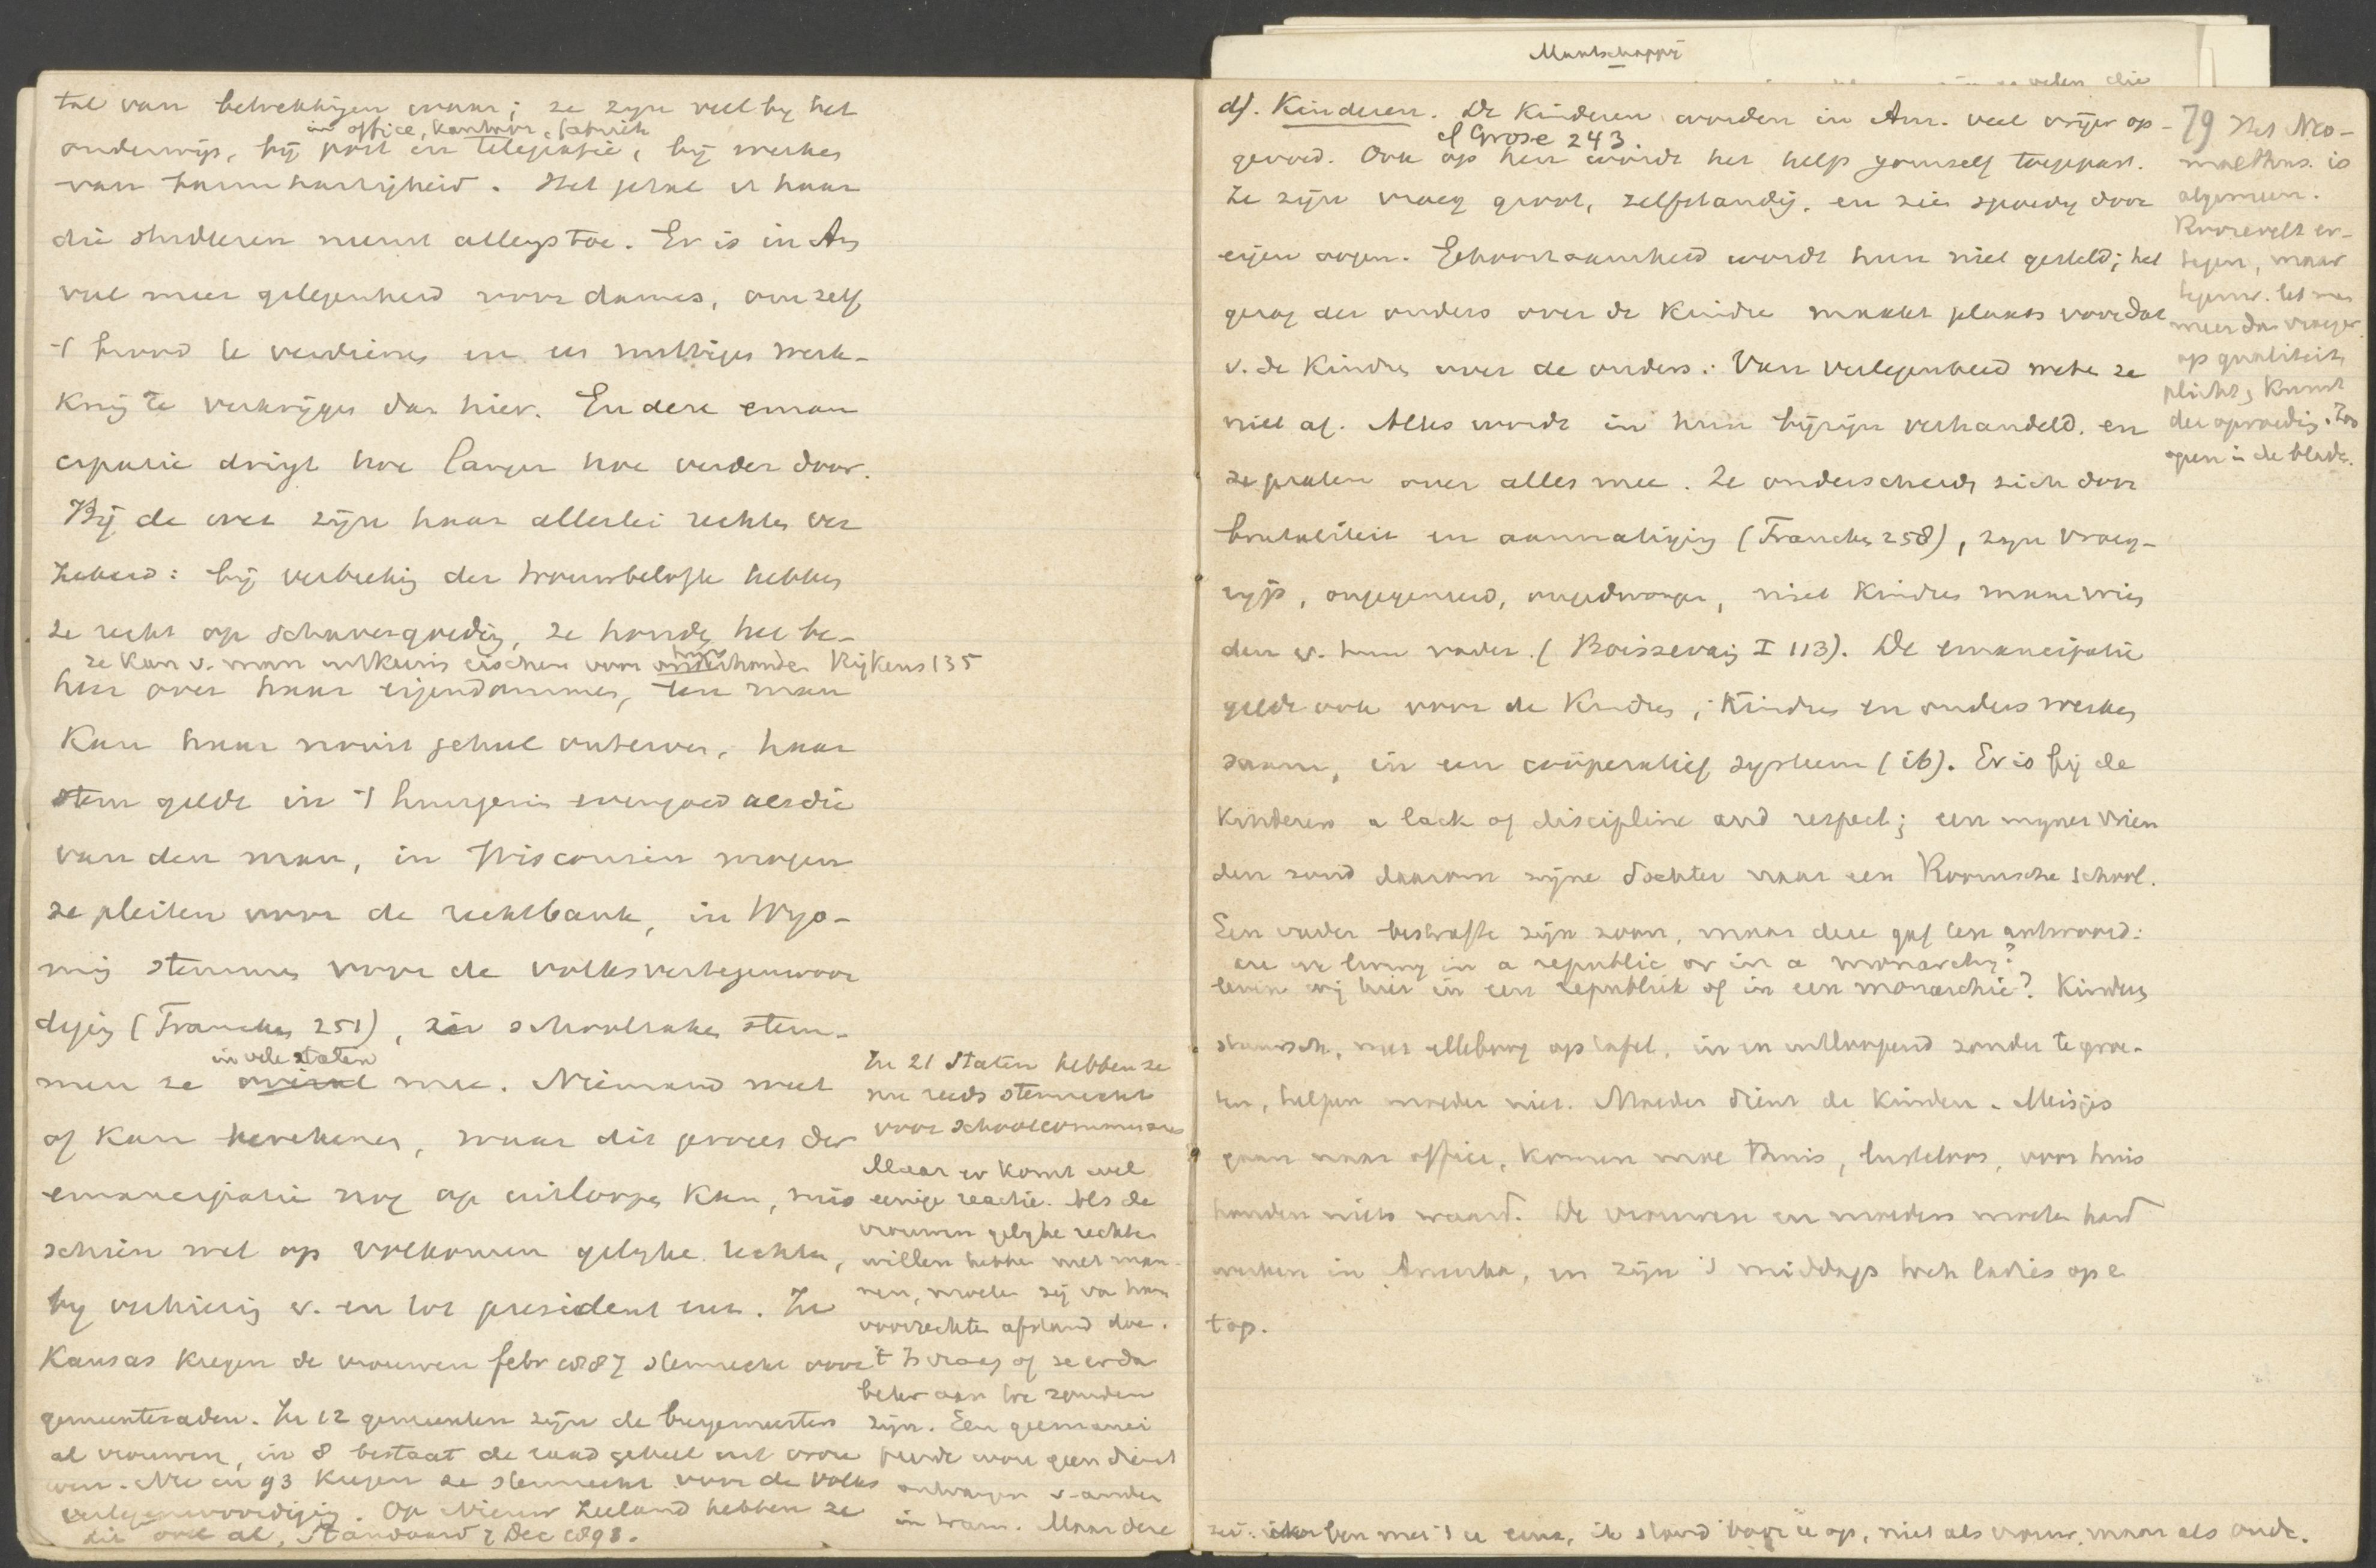 tal van betrekkingen waar; ze zyn veel by het
in office, kantoor, fabriek
onderwijs, bij post en telegrafie, bij werken
van barmhartigheid. Het getal er haar
die studeeren neemt allengs toe. Er is in Am
veel meer gelegenheid voor dames, om zelf
't brood te verdienen en een nuttigen werk-
kring te verkrijgen dan hier. En deze eman
cipatie dringt hoe langer hoe verder door.
Bij de wet zijn haar allerlei rechten ver
zekerd: bij verbreking der trouwbelofte hebben
ze recht op schavergoeding, ze houden het be-
ze kan v. man uitkeering eischen voor onderhouden Rijkens 135
heer over haar eigendommen, een man
kan haar nooit geheel onterven, haar
stem geldt in 't huisgezin evengoed als die
van den man, in Wisconsin mogen
ze pleiten voor de rechtbank, in Wyo-
ming stemmen voor de volksvertegenwoor
diging (Francken 251), in schoolzaken stem-
in vele staten
men ze overal mee. Niemand weet
of kan berekenen, waar dit proces der
emancipatie nog op uitloopen kan, mis
schien wel op volkomen gelyke rechten,
by verkiezing v. en tot president enz. In
Kansas kregen de vrouwen febr 1887 stemrecht voor
gemeenteraden. In 12 gemeenten zijn de burgemeesters
al vrouwen, in 8 bestaat de raad geheel uit vrou
wen. Nu in 93 kregen ze stemrecht voor de volks
vertegenwoordiging. Op Nieuw Zeeland hebben ze
dit ook al, Standaard 7 Dec 1898.
In 21 Staten hebben ze
nu reeds stemrecht
voor schoolcommissies
Maar er komt wel
eenige reactie. Als de
vrouwen gelyke rechten
willen hebben met man-
nen, moeten zij van haar
voorrechten afstand doen.
't Is vraag of ze er dan
beter aan toe zouden
zijn. Een geemanci
peerde wou geen dienst
ontvangen v. ander
in tram. Maar deze
Maatschappij
velen die
d). Kinderen. De kinderen worden in Am. veel vrijer op-
cf Grose 243.
gevoed. Ook op hen wordt het help yourself toegepast.
Ze zijn vroeg groot, zelfstandig, en zien spoedig door
eigen oogen. Gehoorzaamheid wordt hun niet geleerd; het
gezag der ouders over de kinders maakt plaats voor dat
v. de kinders over de ouders. Van verlegenheid weten ze
niet af. Alles wordt in hun bijzijn verhandeld, en
ze praten over alles mee. Ze onderscheiden zich door
brutaliteit en aanmatiging (Francken 258), zyn vroeg-
ryp, ongegeneerd, ongedwongen, niet kinders maar vrien
den v. hun vader. (Boissevain I 113). De emancipatie
geldt ook voor de kinders; kinders en ouders werken
saam, in een coöperatief systeem (ib). Er is bij de
kinderen a lack of discipline and respect; een myner vrien
den zond daarom zijne dochter naar een Roomsche school.
Een vader bestrafte zijn zoon, maar deze gaf ten antwoord:
are we living in a republic or in a monarchy?
leven wij hier in een republiek of in een monarchie? Kinders
slaapsch, met elleboog op tafel, in en uitloopend zonder te groe-
ten, helpen moeder niet. Moeder dient de kinders. Meisjes
gaan naar office, komen moe thuis, lusteloos, voor huis
houden niets waard. De vrouwen en moeders moeten hard
werken in Amerika, en zijn 's middags toch ladies op e
top.
79 Het Neo-
malthus. is
algemeen.
Roosevelt er-
tegen, maar
tegenw. let men
meer dan vroeger
op qualiteit,
plicht, kunst
der opvoeding. Zoo
open in de bladen.
zei: ik ben met u eens, ik stond voor u op, niet als vrouw, maar als oude.